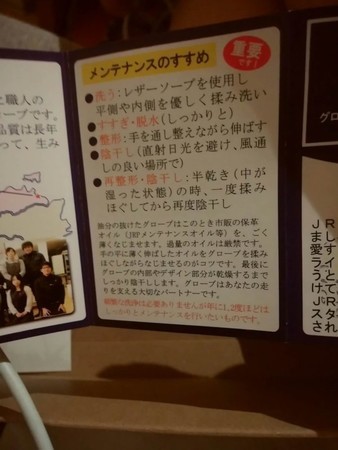 メンテナンスのすすめ
重要
です！
●洗う：レザーソープを使用し
平側や内側を優しく揉み洗い
●すすぎ・脱水(しっかりと)
●整形：手を通し整えながら伸ばす
●陰干し(直射日光を避け、風通
しの良い場所で)
●再整形・陰干し：半乾き(中が
湿った状態)の時、一度揉み
ほぐしてから再度陰干し
油分の抜けたグローブはこのとき市販の保革
オイル(JRFメンテナンスオイル等)を、ごく
薄くなじませます。過量のオイルは厳禁です。
手の平に薄く伸ばしたオイルをグローブを揉み
ほぐしながらなじませるのがコツです。最後に
グローブの内部やデザイン部分が乾燥するまで
しっかり陰干しします。グローブはあなたの走
りを支える大切なパートナーです。
頻繁な洗浄は必要ありませんが年に1,2度ほどは
しっかりとメンテナンスを行いたいものです。
職人の
ーブです。
品質は長年
って、生み
グロ